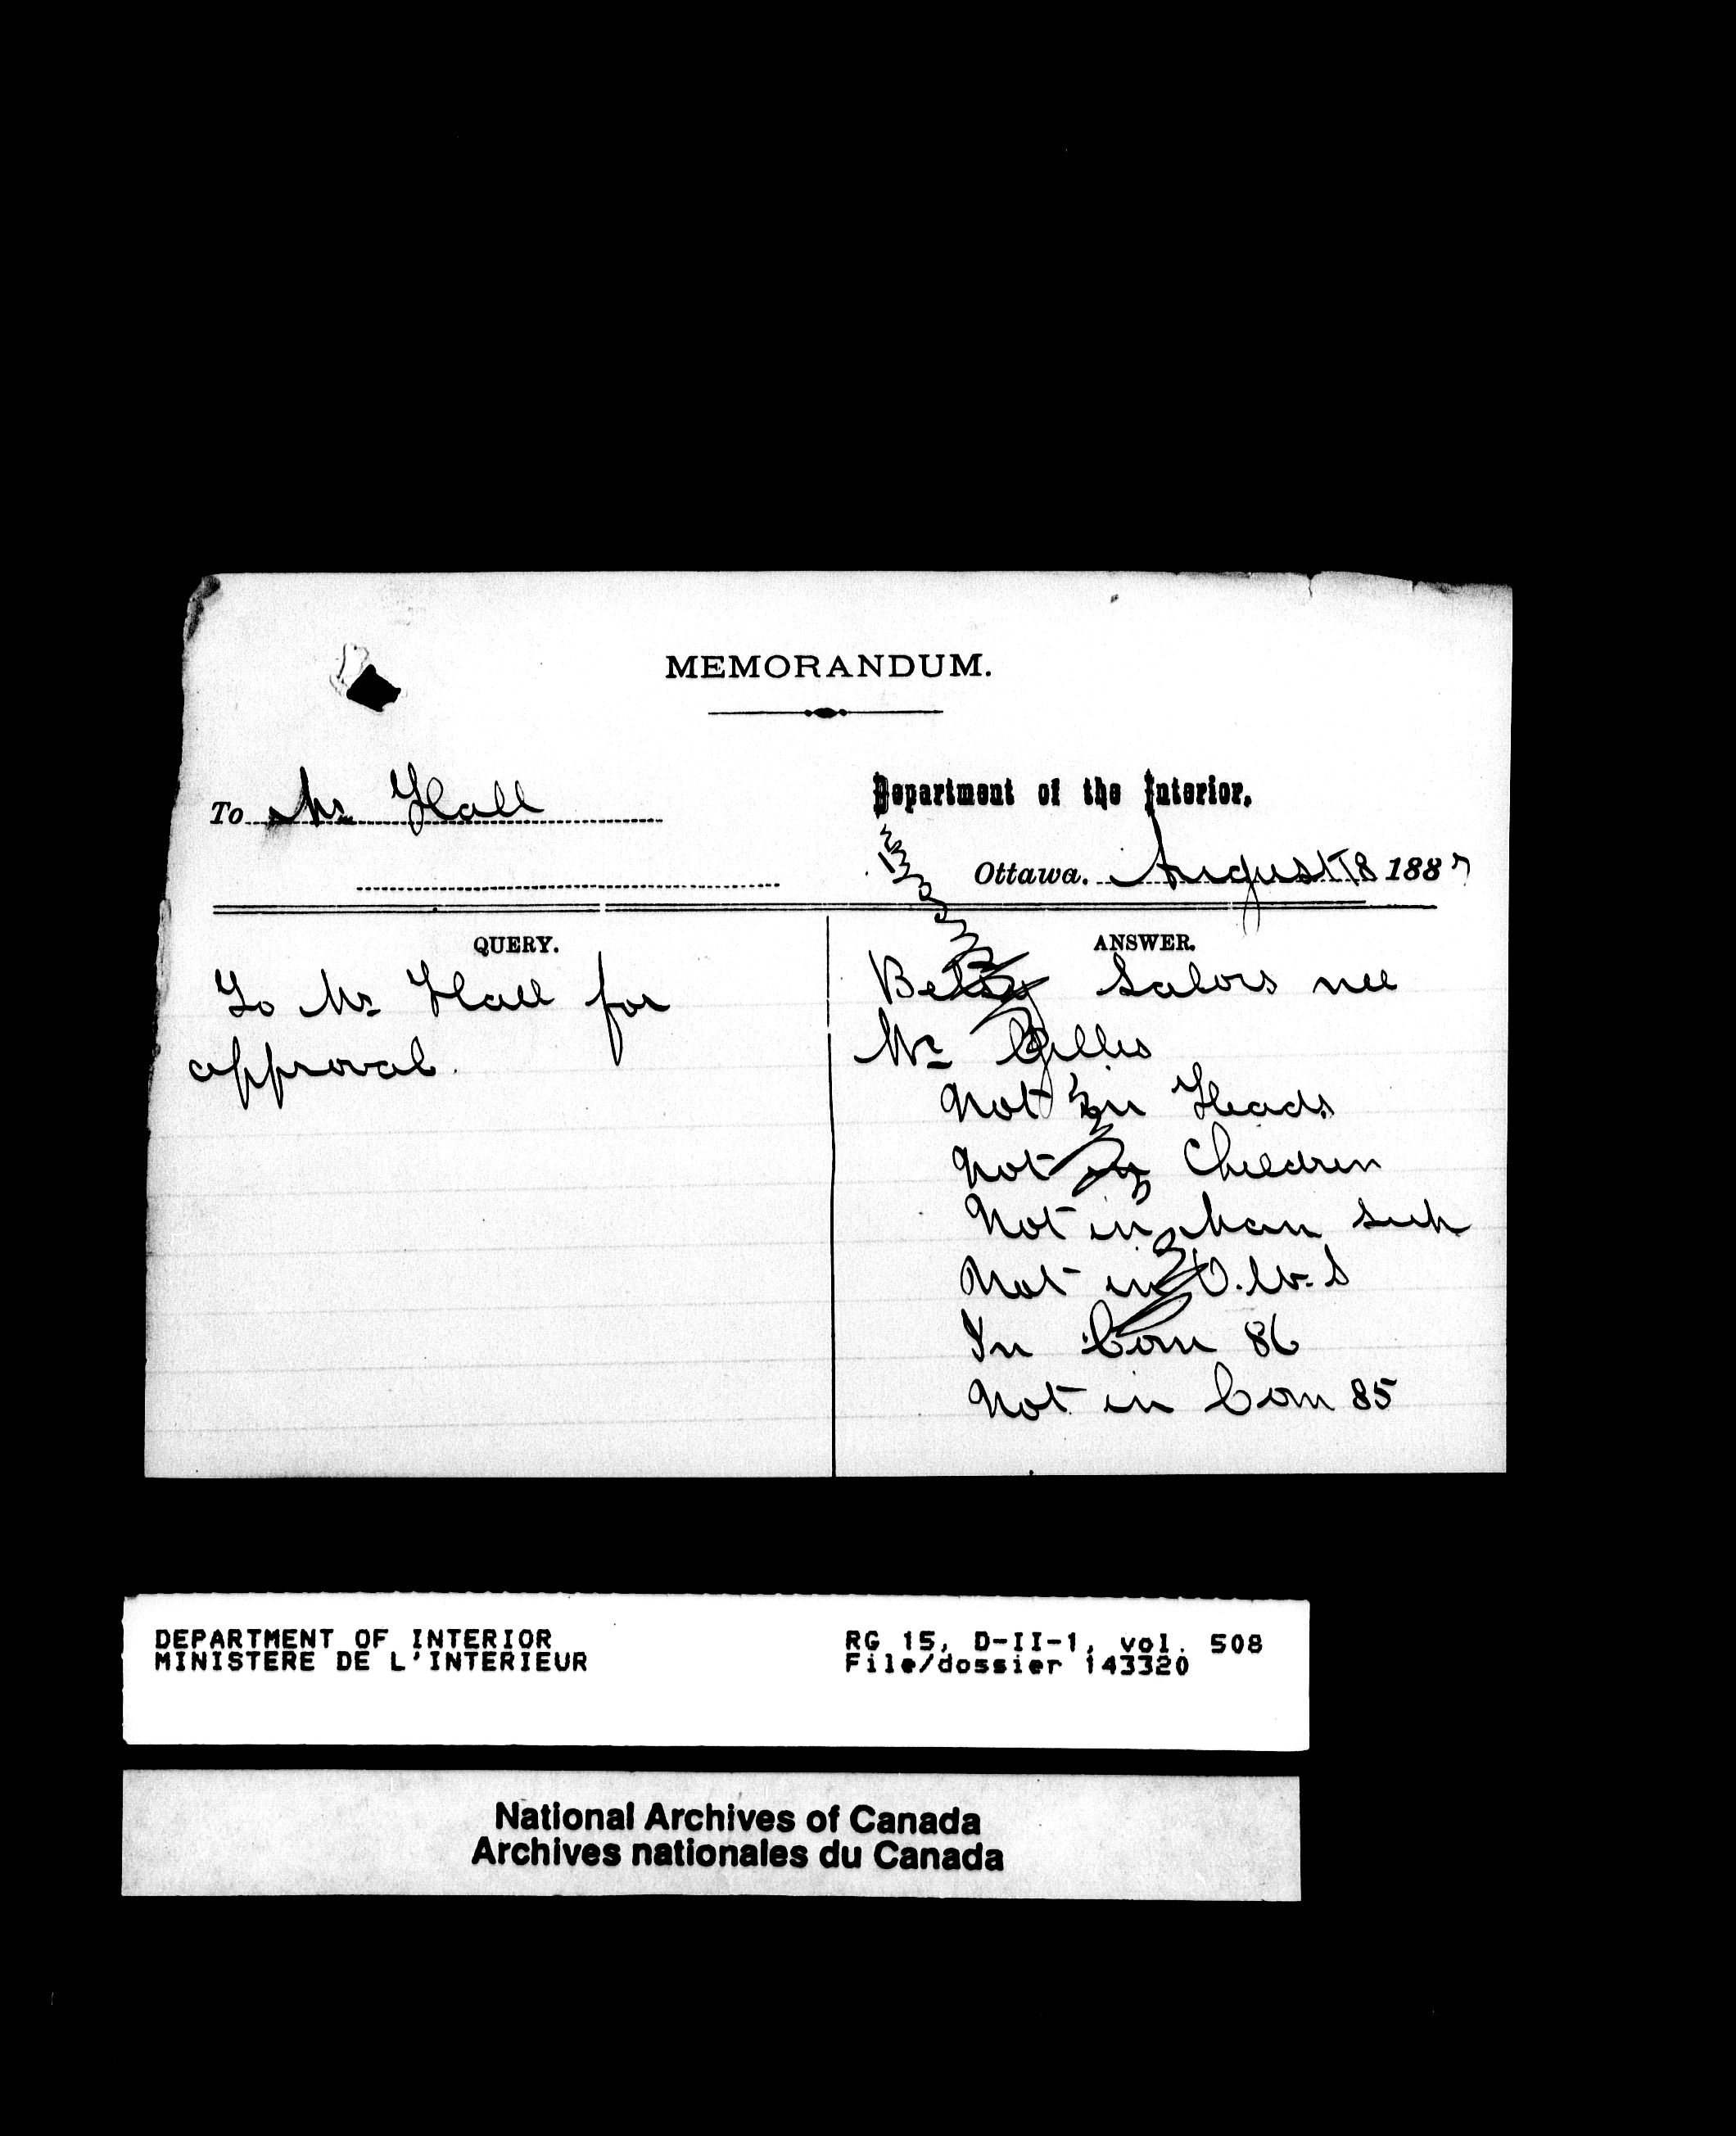 MEMORANDUM.
To Mr Hall
Department of the Interior,
Ottawa. August 18 1887
QUERY.
To Mr Hall for
approval.
ANSWER.
Betsy Salois nee
Mc Gillis
Not in Heads
Not in Children
Not in Man Sup
Not in O.W.S
In Com 86
Not in Com 85
DEPARTMENT OF INTERIOR
MINISTERE DE L'INTERIEUR
RG 15, D-II-1, vol. 508
File/dossier 143320
National Archives of Canada
Archives nationales du Canada